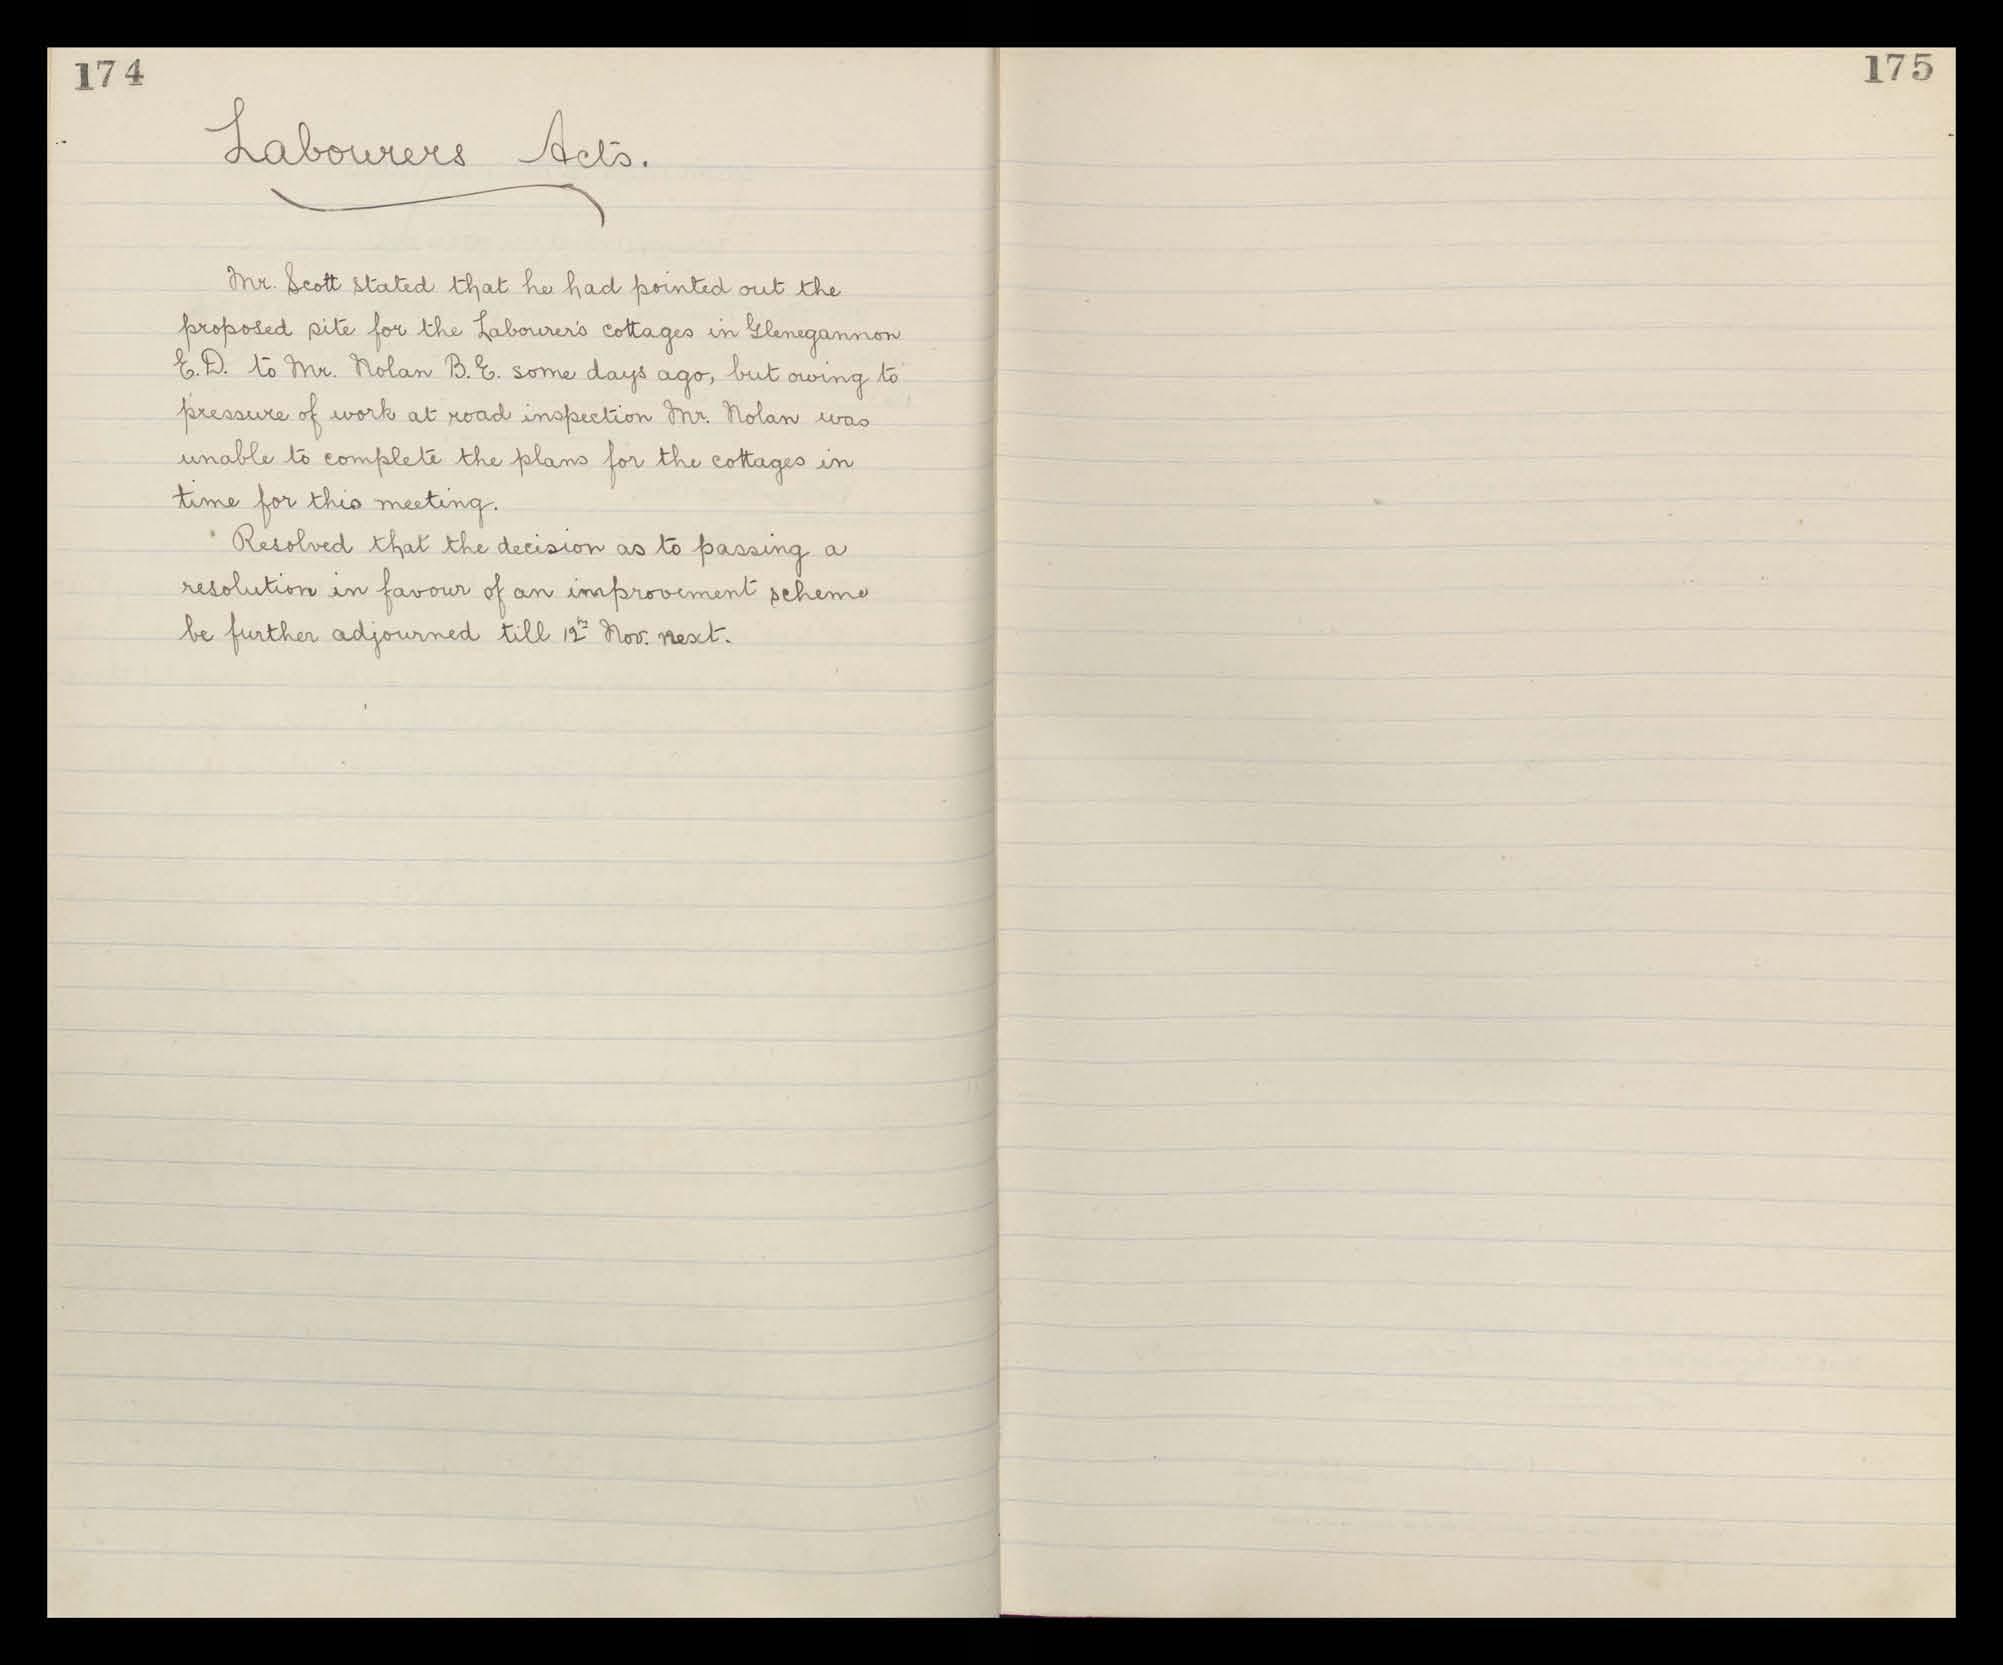 174
Labourers Acts.
Mr. Scott stated that he had pointed out the
proposed site for the Labourer's cottages in Glenegannon
E.D. to Mr. Nolan B.E. some days ago, but owing to
pressure of work at road inspection Mr. Nolan was
unable to complete the plans for the cottages in
time for this meeting.
Resolved that the decision as to passing a
resolution in favour of an improvement scheme
be further adjourned till 12th Nov. next.
175